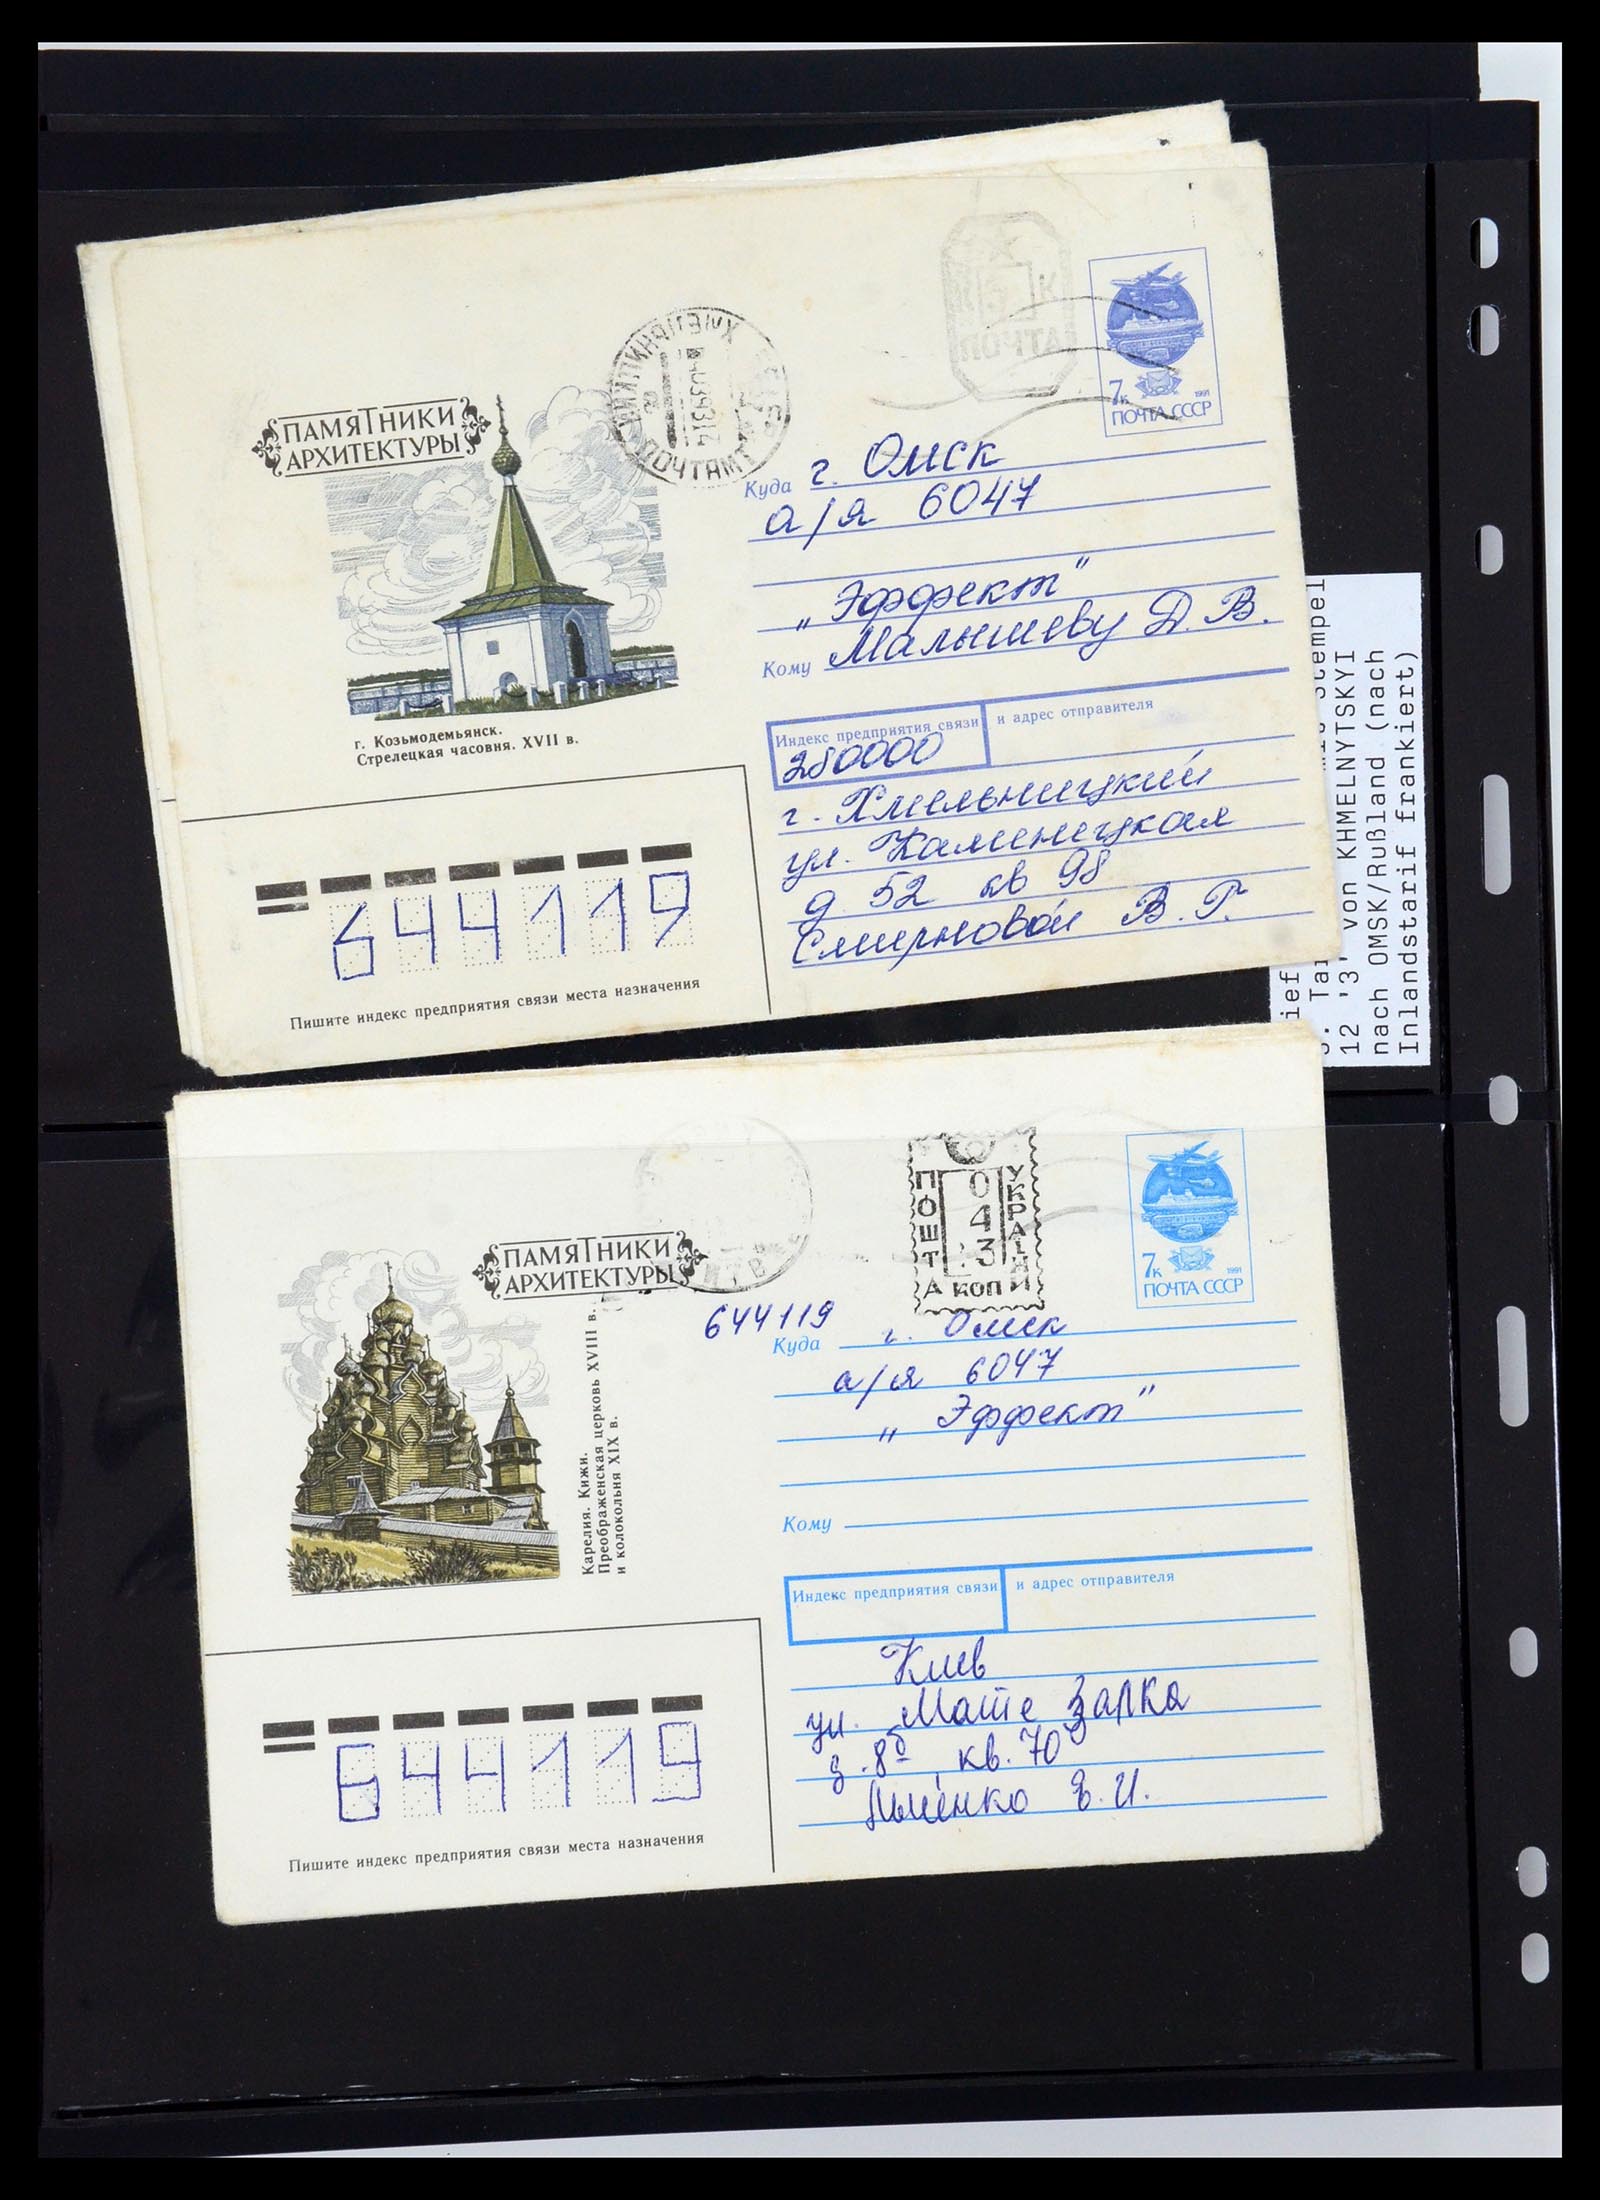 ПАМЯТНИКИ
АРХИТЕКТУРЫ
г. Козьмодемьянск.
Стрелецкая часовня. XVII в.
ХМЕЛЬНИЦКИЙ
ПОЧТАМТ
7к 1991
ПОЧТА СССР
Куда г. Омск
а/я 6047
„Эффект"
Кому Малышеву Д. В.
Индекс предприятия связи и адрес отправителя
280000
г. Хмельницкий
ул. Каменецкая
д 52 кв 98
Смирновой В. Г.
644119
Пишите индекс предприятия связи места назначения
Stempel
12 '3' von KHMELNYTSKYI
nach OMSK/Rußland (nach
Inlandstarif frankiert)
ПАМЯТНИКИ
АРХИТЕКТУРЫ
Карелия. Кижи.
Преображенская церковь XVIII в.
и колокольня XIX в.
ПОШТА УКРАЇНИ
04
3
коп
7к 1991
ПОЧТА СССР
644119
Куда г. Омск
а/я 6047
„Эффект"
Кому
Индекс предприятия связи и адрес отправителя
Киев
ул. Мате Залка
д. 8б, кв. 70
Е. И.
644119
Пишите индекс предприятия связи места назначения